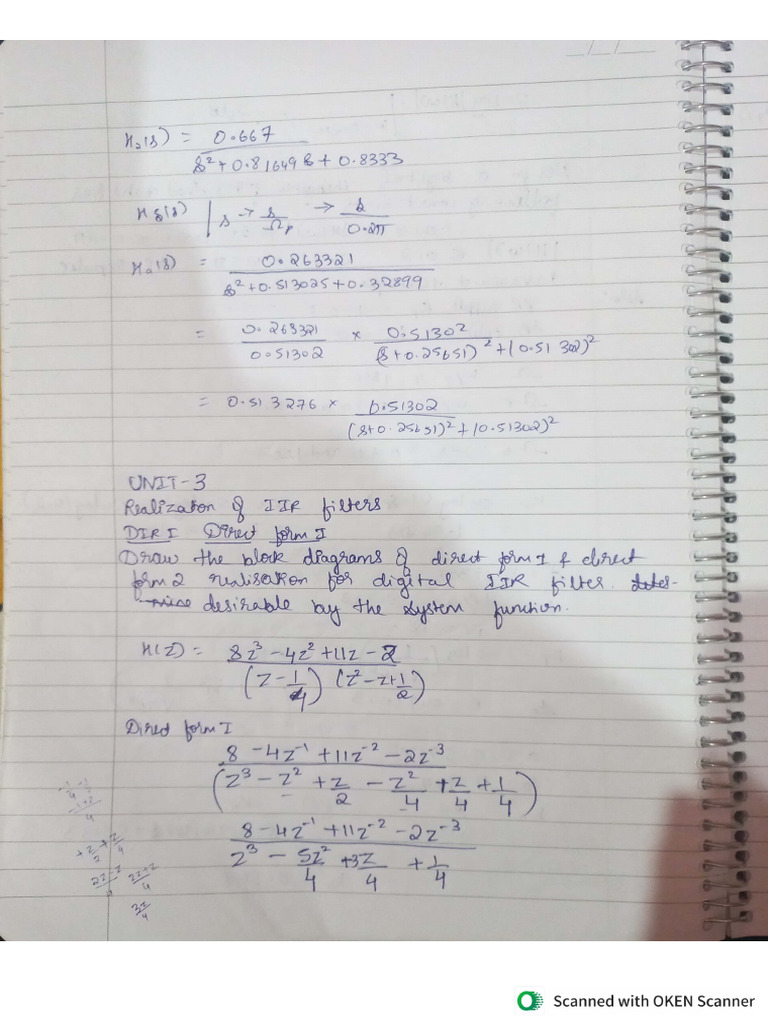 H₂(s) = 0.667 / s² + 0.81649 s + 0.8333
Hₐ(s) | s → s/Ωp → s/0.2π
Hₐ(s) = 0.263321 / s² + 0.51302s + 0.32899
= 0.263321/0.51302 × 0.51302 / (s+0.25651)² + (0.51302)²
= 0.513276 × 0.51302 / (s+0.25651)² + (0.51302)²
UNIT-3
Realization of IIR filters
DIR I Direct form I
Draw the block diagrams of direct form 1 & direct
form 2 realisation for digital IIR filter.
desirable by the system function.
H(z) = 8z³ - 4z² + 11z - 2 / (z - 1/4) (z² - z + 1/2)
Direct form I
8 - 4z⁻¹ + 11z⁻² - 2z⁻³ / (z³ - z² + z/2 - z²/4 + z/4 + 1/4)
8 - 4z⁻¹ + 11z⁻² - 2z⁻³ / z³ - 5z²/4 + 3z/4 + 1/4
+ z/2 + z/4
3z/4
Scanned with OKEN Scanner